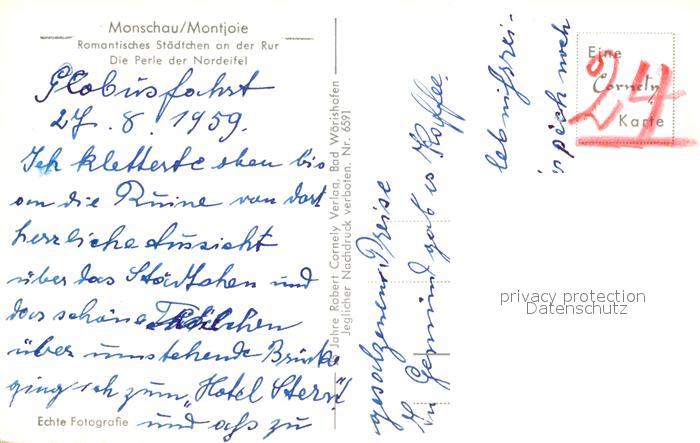 Monschau/Montjoie
Romantisches Städtchen an der Rur
Die Perle der Nordeifel
Globusfahrt
27. 8. 1959.
Ich kletterte oben bis
an die Ruine von dort
herrliche Aussicht
über das Städtchen und
das schöne Tälchen
über umstehende Brücke
ging ich zum „Hotel Stern"
und aß zu
Echte Fotografie
Jahre Robert Cornely Verlag, Bad Wörishofen
Jeglicher Nachdruck verboten. Nr. 6591
gesalzenen Preise
In Gemünd gab es Kaffee.
noch
Eine
Cornely
Karte
24
privacy protection
Datenschutz